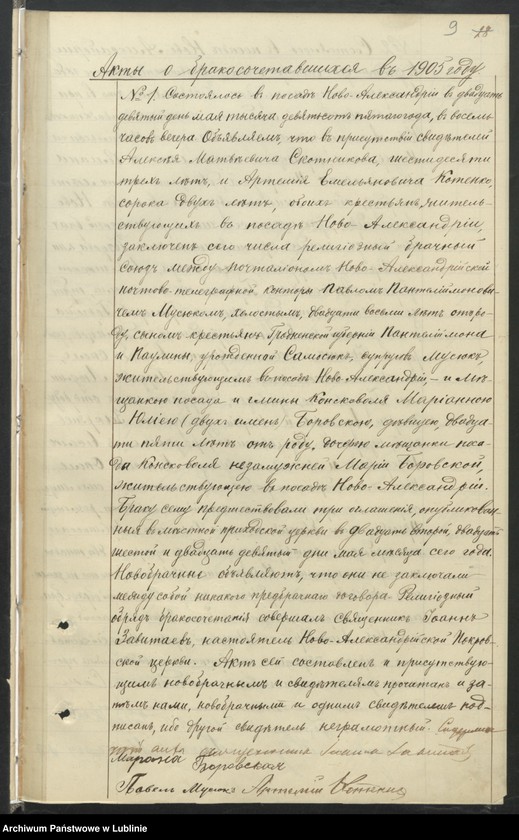 9 28
Акты о бракосочетавшихся въ 1905 году
№ 1. Состоялось в посадѣ Ново-Александріи въ двадцать
девятый день мая тысяча девятьсотъ пятаго года, въ восемь
часовъ вечера. Объявляемъ, что въ присутствіи свидѣтелей
Алексѣя Матвѣевича Скотникова, шестидесяти
трехъ лѣтъ, и Артемія Емельяновича Котенко,
сорока двухъ лѣтъ, обоихъ крестьянъ, житель-
ствующихъ въ посадѣ Ново-Александріи,
заключенъ сего числа религіозный брачный
союзъ между почталіономъ Ново-Александрійской
почтово-телеграфной конторы Павломъ Пантелеймонови-
чемъ Мусюкомъ, холостымъ, двадцати восьми лѣтъ отъ ро-
ду, сыномъ крестьянъ Гродненской губерніи Пантелеймона
и Паулины, урожденной Самосюкъ, супруговъ Мусюкъ,
жительствующимъ въ посадѣ Ново-Александріи — и мѣ-
щанкою посада и гмины Консковоля Маріанною
-Юліею (двухъ именъ) Боровскою, дѣвицею, двадца-
ти пяти лѣтъ отъ роду, дочерью мѣщанки поса-
да Консковоля незамужней Маріи Боровской,
жительствующею въ посадѣ Ново-Александріи.
Браку сему предшествовали три оглашенія, опубликован-
ныя в мѣстной приходской церкви въ двадцать второй, двадцать
шестой и двадцать девятый дни мая мѣсяца сего года.
Новобрачные объявляютъ, что они не заключали
между собой никакого предбрачнаго договора. Религіозный
обрядъ бракосочетанія совершалъ Священникъ Іоаннъ
Завитаевъ, настоятель Ново-Александрійской Покров-
ской церкви. Актъ сей составленъ и присутствую-
щимъ новобрачнымъ и свидѣтелямъ прочитанъ и за-
тѣмъ нами, новобрачными и однимъ свидѣтелемъ под-
писанъ, ибо другой свидѣтель неграмотный.
акта священникъ
Марiанна Боровская
Павелъ Мусюкъ Артемій Котенко
Archiwum Państwowe w Lublinie